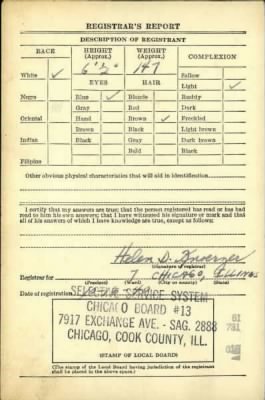 REGISTRAR'S REPORT
DESCRIPTION OF REGISTRANT
RACE HEIGHT (Approx.) WEIGHT (Approx.) COMPLEXION
6' ½" 147
White ✓ EYES HAIR Sallow
Light ✓
Negro Blue ✓ Blonde Ruddy
Gray Red Dark
Oriental Hazel Brown ✓ Freckled
Brown Black Light brown
Indian Black Gray Dark brown
Bald Black
Filipino
Other obvious physical characteristics that will aid in identification
I certify that my answers are true; that the person registered has read or has had
read to him his own answers; that I have witnessed his signature or mark and that
all of his answers of which I have knowledge are true, except as follows:
Helen D.
(Signature of registrar)
Registrar for 7 CHICAGO, ILLINOIS
(Precinct) (Ward) (City or county) (State)
Date of registration
SELECTIVE SERVICE SYSTEM
CHICAGO BOARD #13
7917 EXCHANGE AVE. - SAG. 2888
CHICAGO, COOK COUNTY, ILL.
(STAMP OF LOCAL BOARD)
(The stamp of the Local Board having jurisdiction of the registrant
shall be placed in the above space.)